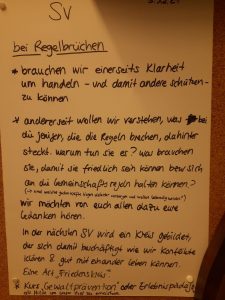 SV
bei Regelbrüchen
* brauchen wir einerseits Klarheit
um handeln - und damit andere schützen -
zu können
* andererseit wollen wir verstehen, was
bei die jenigen, die die Regeln brechen, dahinter
steckt. warum tun sie es? was brauchen
sie, damit sie friedlich sein können bzw sich
an die Gemeinschaftsregeln halten können?
wir möchten von euch allen dazu eure
Gedanken hören.
In der nächsten SV wird ein Kreis gebildet,
der sich damit beschäftigt wie wir Konflikte
klären & gut miteinander leben können.
Eine Art „Friedenskreis"
* Kurs „Gewaltprävention" oder Erlebnispädag